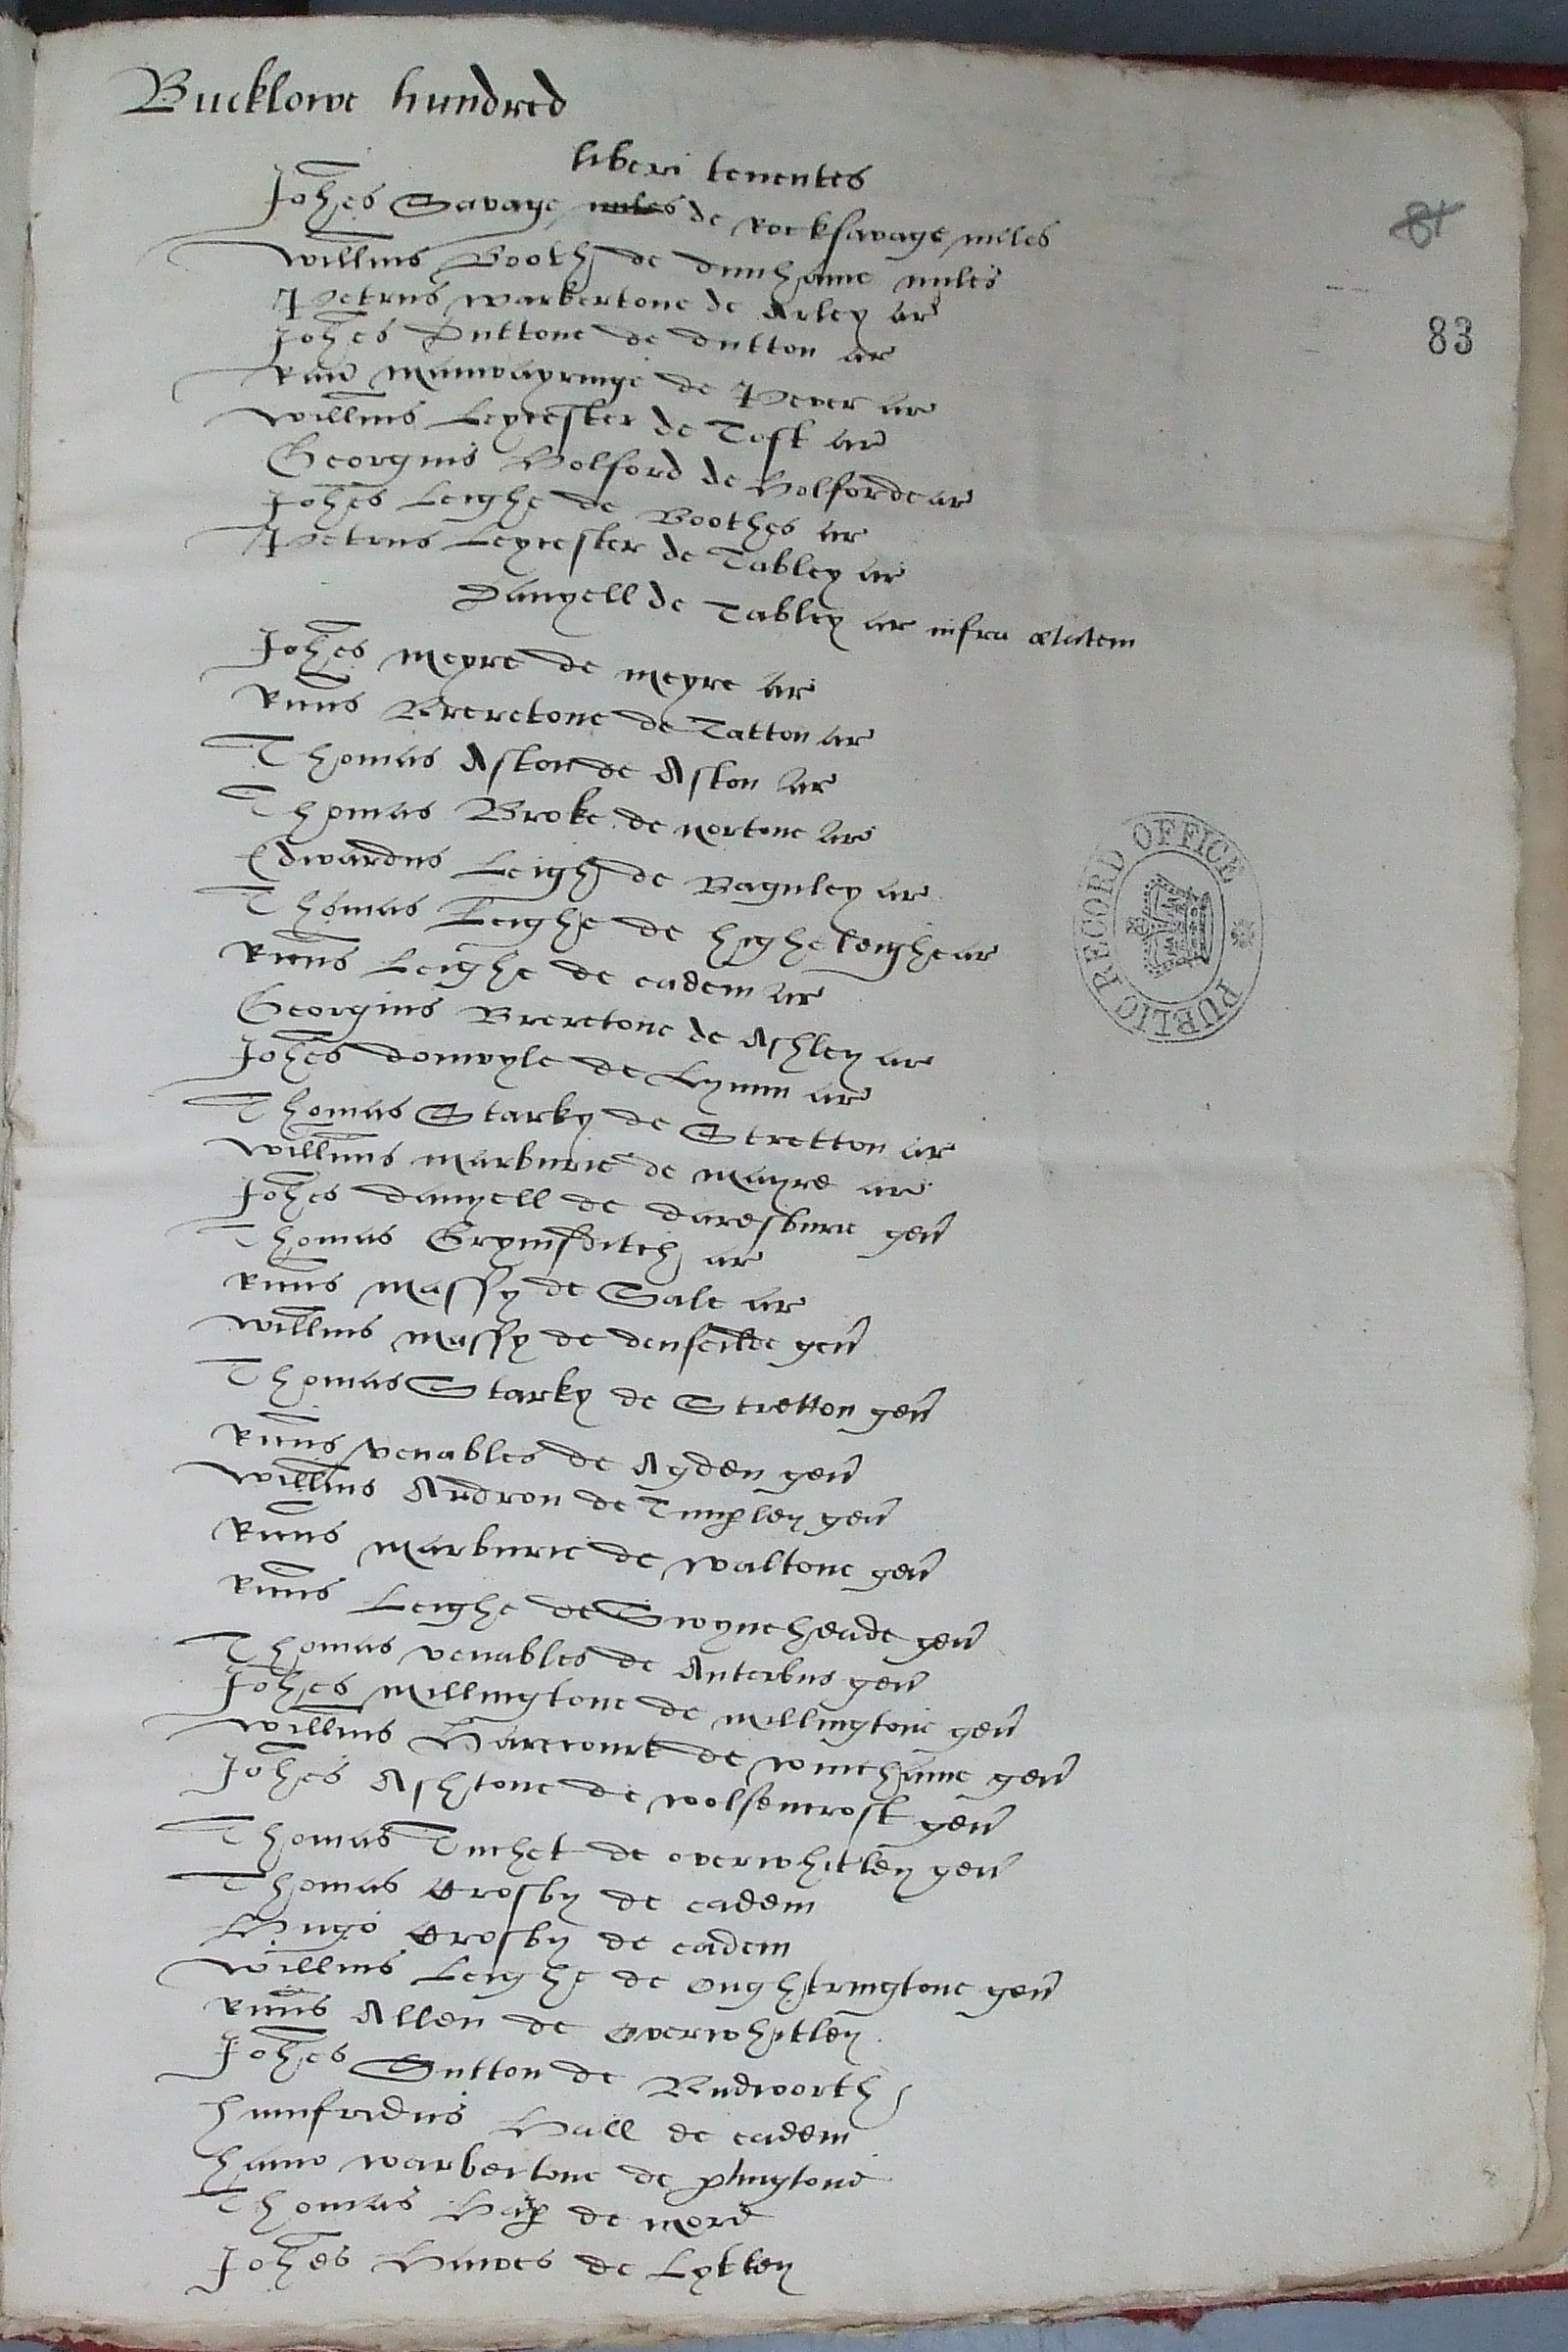 Bucklowe hundred
liberi tenentes
Johes Savage miles de Rocksavage miles
84
Willms Booth de dunhame miles
Petrus warbertone de Arley ar
83
Johes Duttone de dutton ar
Rau Manwayringe de Pever ar
Willms Leycester de Toft ar
Georgius Holford de Holforde ar
Johes Leighe de Boothes ar
Petrus Leycester de Tabley ar
Danyell de Tabley ar infra ætatem
Johes Meyre de Meyre ar
Ricus Breretone de Tatton ar
Thomas Aston de Aston ar
Thomas Broke de Nortone ar
Edwardus Leigh de Baguley ar
Thomas Leighe de highe leighe ar
Ricus Leighe de eadem ar
Georgius Breretone de Ashley ar
Johes domvyle de Lymm ar
Thomas Starky de Stretton ar
Willmus Marburie de Mayre ar
Johes danyell de daresburie gen
Thomas Grymsditch ar
Ricus Massy de Sale ar
Willms Massy de denfeilde gen
Thomas Starky de Stretton gen
Ricus venables de Agden gen
Willms Ardron de Timpley gen
Ricus Marburie de waltone gen
Ricus Leighe de Swyneheade gen
Thomas venables de Anterbus gen
Johes Millingtone de Millingtone gen
Willms Harcourt de winchame gen
Johes Ashtone de wolsencroft gen
Thomas Tuchet de overwhitley gen
Thomas Crosby de eadem
Hugo Crosby de eadem
Willms Leighe de Oughtringtone gen
Ricus Allen de Overwhitley
Johes Sutton de Budworth
humfridus Hall de eadem
hamo warbertone de ptingtone
Thomas Hap de Mere
Johes Hawes de Lytley
PUBLIC RECORD OFFICE